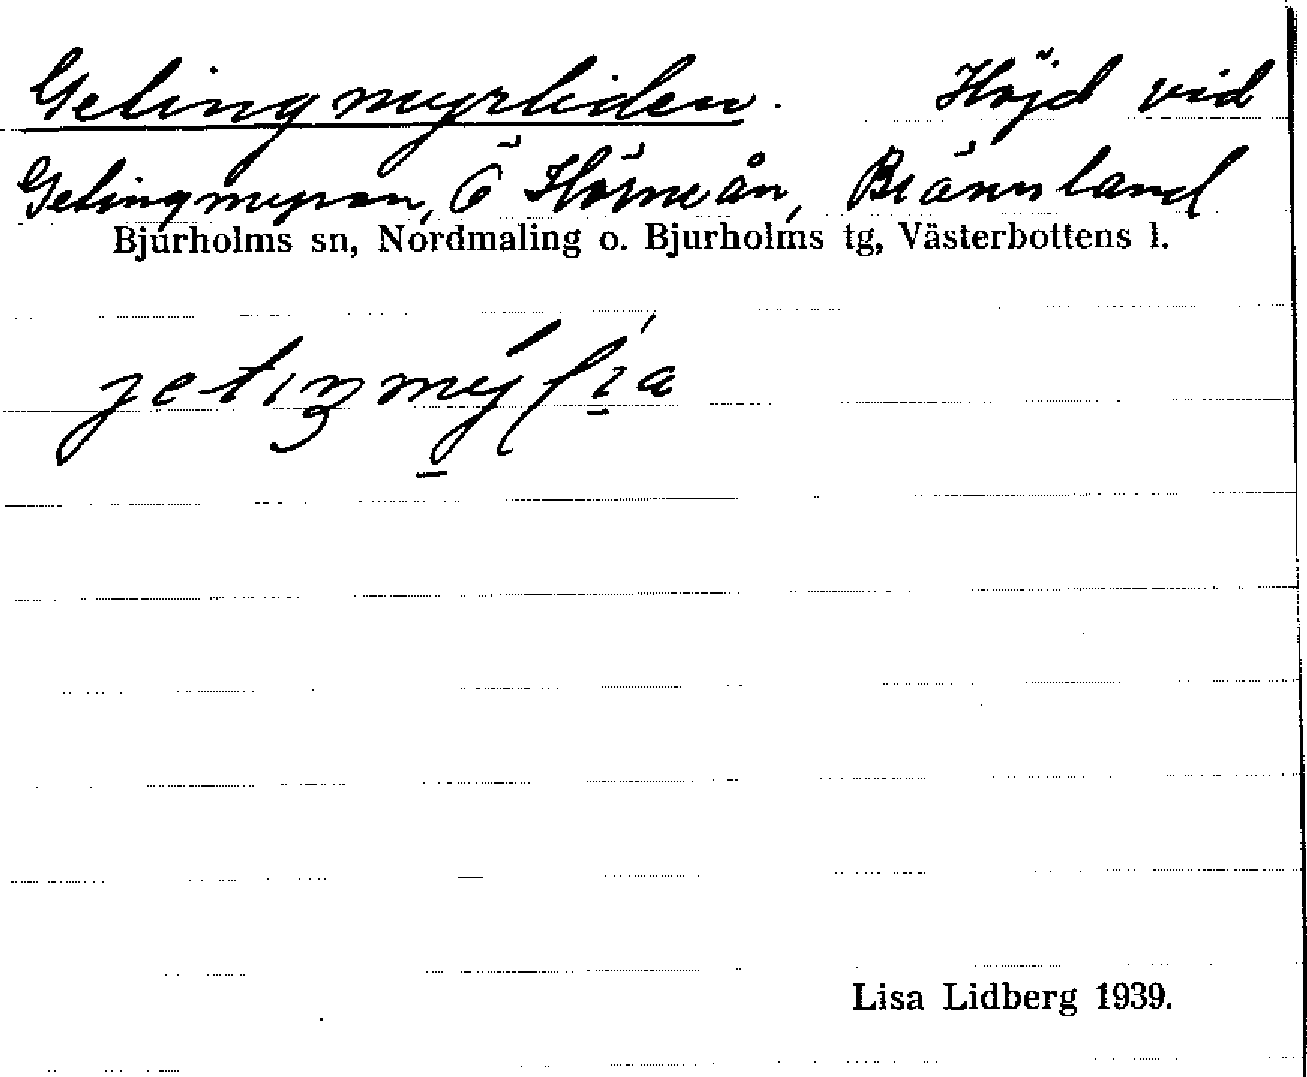 Getingmyrliden. Höjd vid
Getingmyran, Ö Hörneån, Brännland
Bjurholms sn, Nordmaling o. Bjurholms tg, Västerbottens l.
Lisa Lidberg 1939.